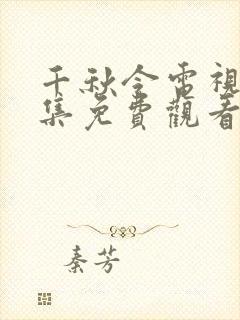 千秋令電視
集免費觀看
秦芳